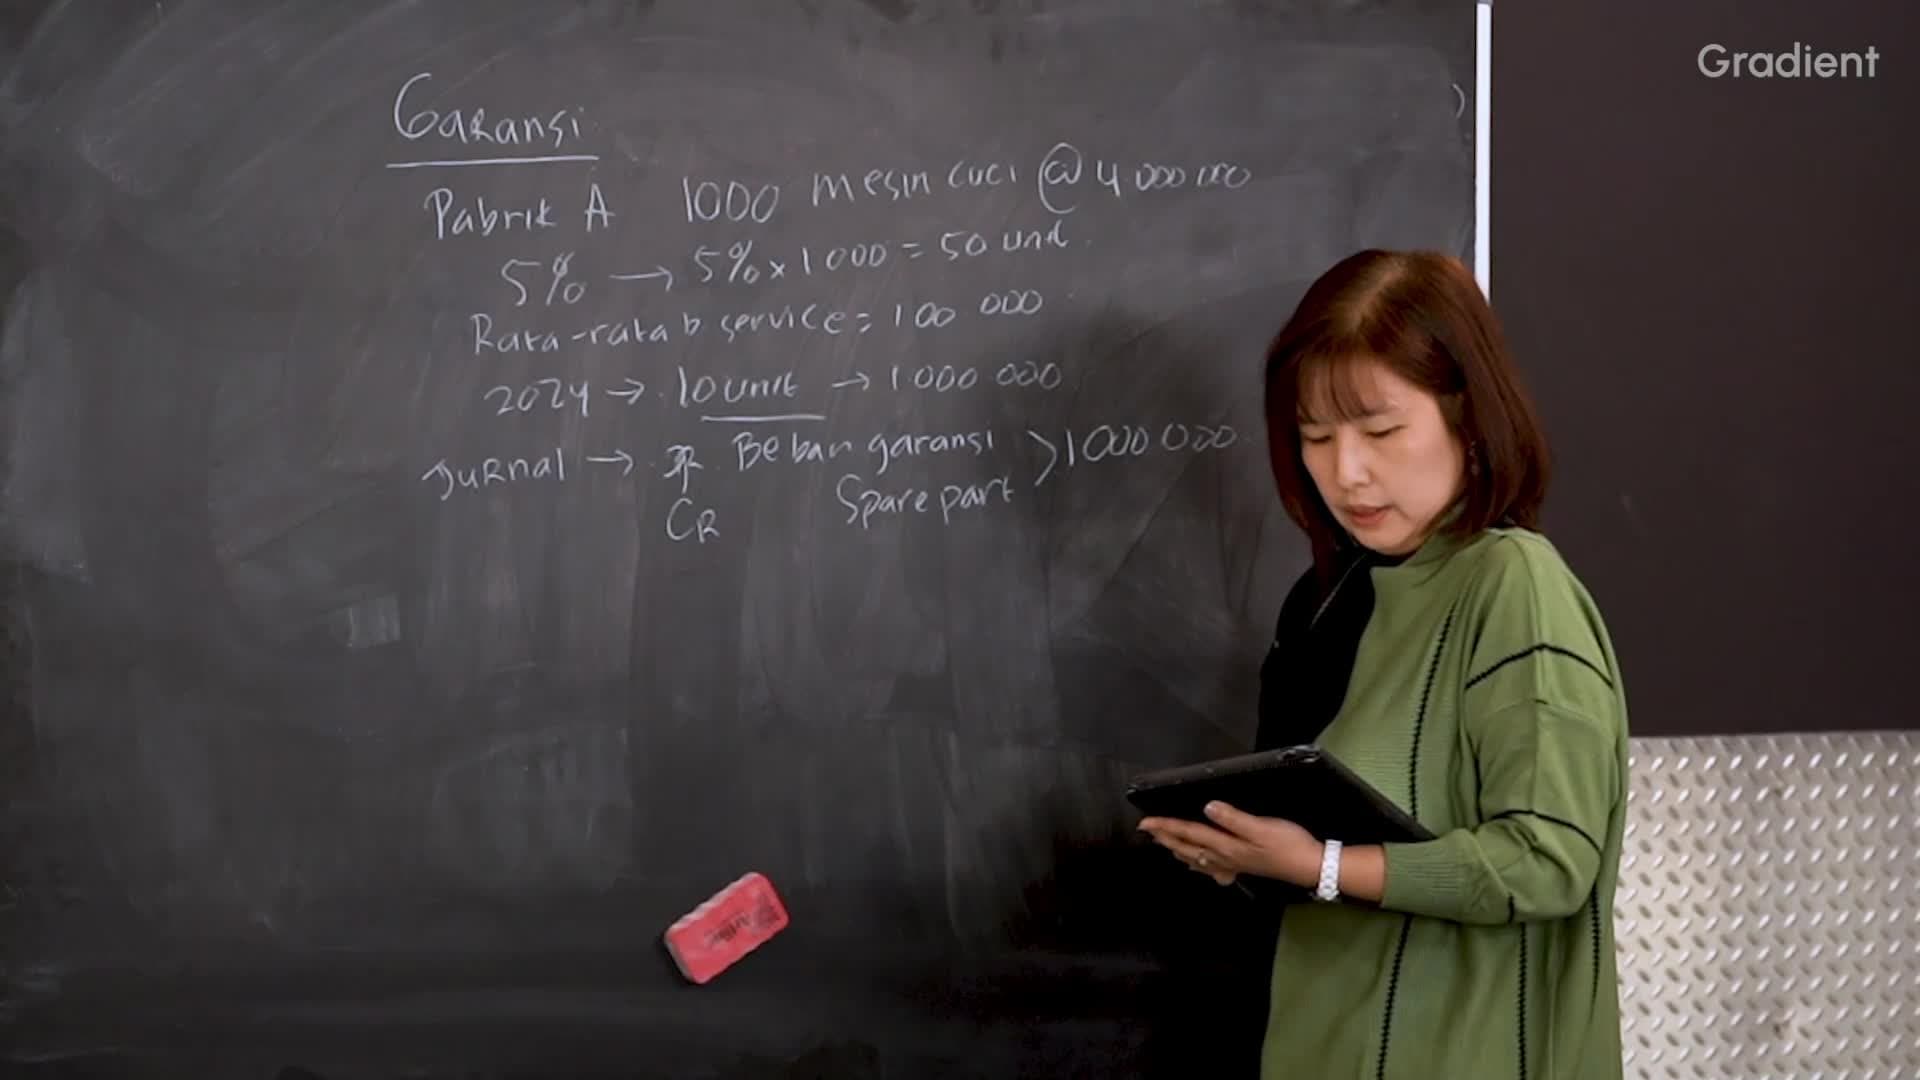 Gradient
Garansi
Pabrik A 1000 mesin cuci @ 4 000 000
5% → 5% x 1000 = 50 unit
Rata-rata b service = 100 000
2024 → 10 unit → 1 000 000
Jurnal → Beban garansi > 1 000 000
CR Spare part